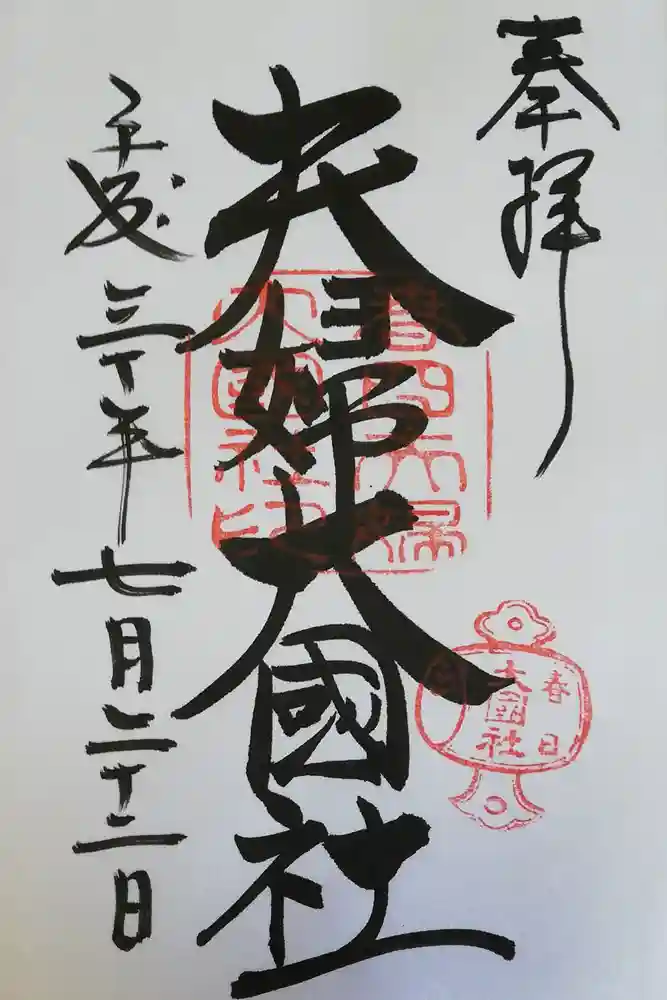 奉拝
夫婦大國社
春日夫婦
大國社印
春日
大國社
平成三十年七月二十二日